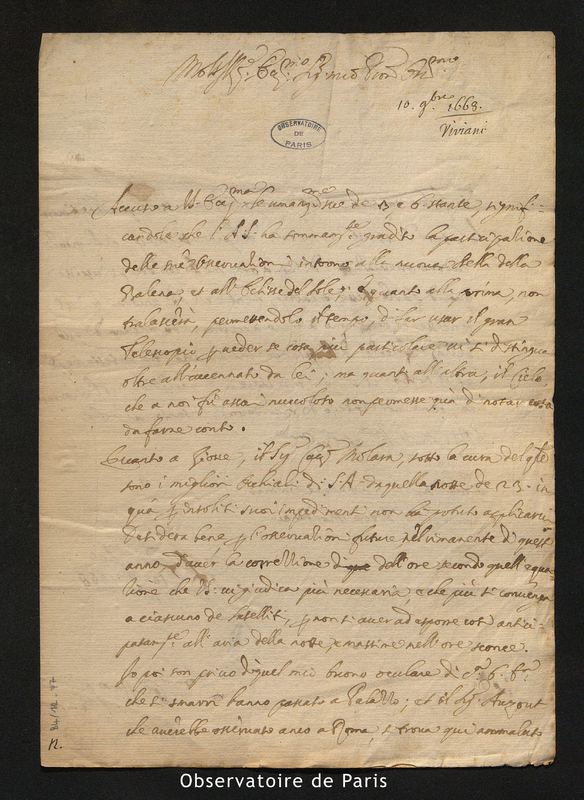 Molt Ill.re
10. 9bre 1668.
Viviani
OBSERVATOIRE
DE
PARIS
Accuso a V.S. Ecc.ma le umaniss.e sue de 3 e 6 stante, signifi-
candole che l'A.S. ha sommam.te gradito la participazione
delle sue osservazioni intorno alla nuova stella della
Balena, et all'Eclisse del Sole, e quanto alla prima, non
tralascerà, permettendolo il tempo, di far usar il gran
Telescopio p veder se cosa più particolare vi si distingua
oltre all'accennato da lei; ma quanto all'altra, il Cielo,
che a noi fù assai nuvoloso non permesse quà di notar cosa
da farne conto.
Quanto a Giove, il Sig.r Molara, sotto la cura del q.le
sono i migliori Occhiali di S.A. da quella notte de 23. in
quà p insoliti suoi impedimenti non ha potuto applicarvi
desidera bene p l'osservazioni future nel rimanente di quest
anno d'aver la correzzione dell'ore secondo quell'equa
zione che V.S. giudica più necessaria e che più si convenga
a ciascuno de Satelliti, p non si aver ad esporre così antici
patam.te all'aria della notte, e massime nell'ore sconce.
Io poi son privo di quel mio buono oculare di
che si smarrì hanno passato a Palazzo; et il Sig. Auzout
che averebbe osservato anco a Roma, si trova qui ammalato
84/12-77
12.
Observatoire de Paris